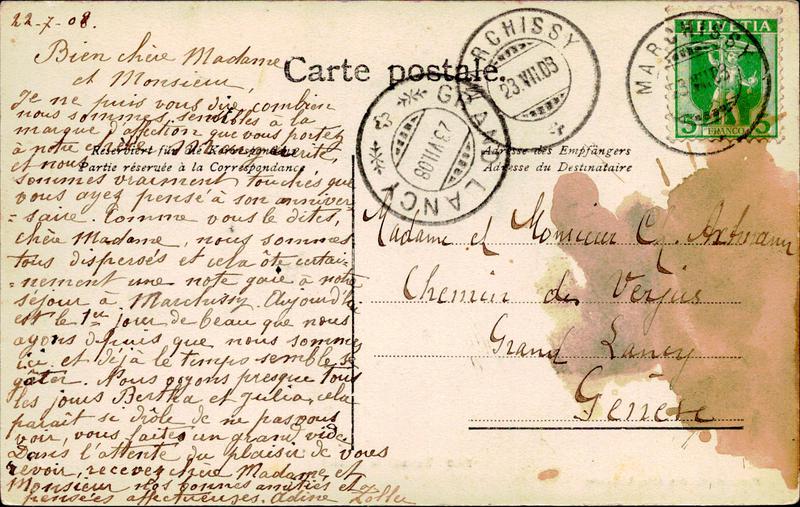 22-7-08.
Bien chère Madame
et Monsieur,
Je ne puis vous dire combien
nous sommes sensibles à la
marque d'affection que vous portez
à notre
et nous
sommes vraiment touchés que
vous ayez pensé à son anniver-
-saire. Comme vous le dites,
chère Madame, nous sommes
tous dispersés et cela ôte certai-
-nement une note gaie à notre
séjour à Marchissy. Aujourd'hui
est le 1er jour de beau que nous
ayons depuis que nous sommes
ici et déjà le temps semble se
gâter. Nous voyons presque tous
les jours Bertha et Julia, cela
paraît si drôle de ne pas vous
voir, vous faites un grand vide.
Dans l'attente du plaisir de vous
revoir, recevez chère Madame, et
Monsieur nos bonnes amitiés et
pensées affectueuses. Adine Zoller
Carte postale.
Reserviert für die Korrespondenz
Partie réservée à la Correspondance
Adresse des Empfängers
Adresse du Destinataire
MARCHISSY
23.VII.08
GRAND LANCY
23.VII.08
MARCHISSY
HELVETIA
5 FRANCO 5
Madame et Monsieur Ch. Artmann
Chemin des Verjus
Grand Lancy
Genève